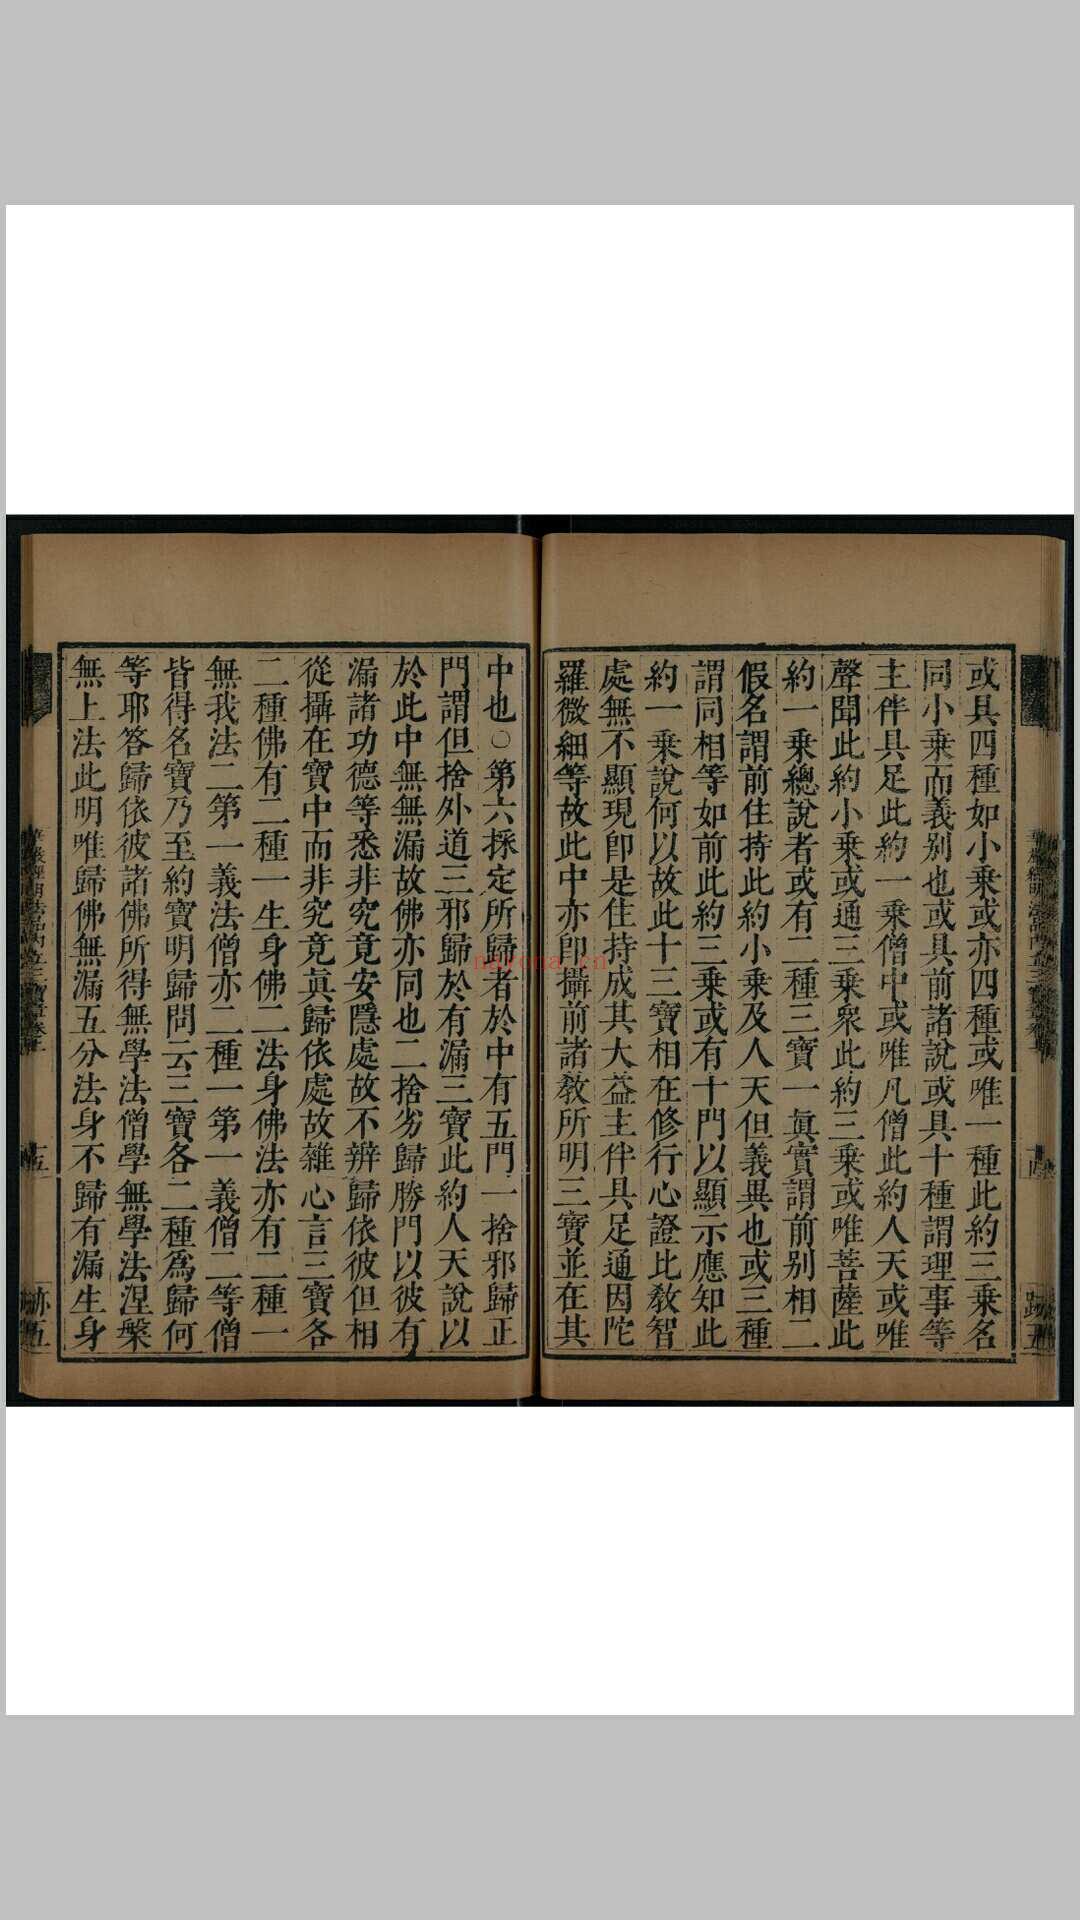 或具四種如小乘或亦四種或唯一種此約三乘名
同小乘而義别也或具前諸說或具十種謂理事等
主伴具足此約一乘僧中或唯凡僧此約人天或唯
聲聞此約小乘或通三乘衆此約三乘或唯菩薩此
約一乘總說者或有二種三寶一眞實謂前别相二
假名謂前住持此約小乘及人天但義異也或三種
謂同相等如前此約三乘或有十門以顯示應知此
約一乘說何以故此十三寶相在修行心證比教智
處無不顯現卽是住持成其大益主伴具足通因陀
羅微細等故此中亦卽攝前諸教所明三寶並在其
中也○第六採定所歸者於中有五門一捨邪歸正
門謂但捨外道三邪歸於有漏三寶此約人天說以
於此中無無漏故佛亦同也二捨劣歸勝門以彼有
漏諸功德等悉非究竟安隱處故不辨歸依彼但相
從攝在寶中而非究竟眞歸依處故雜心言三寶各
二種佛有二種一生身佛二法身佛法亦有二種一
無我法二第一義法僧亦二種一第一義僧二等僧
皆得名寶乃至約寶明歸問云三寶各二種爲歸何
等耶答歸依彼諸佛所得無學法僧學無學法涅槃
無上法此明唯歸佛無漏五分法身不歸有漏生身
十五
跡五
nayona.cn